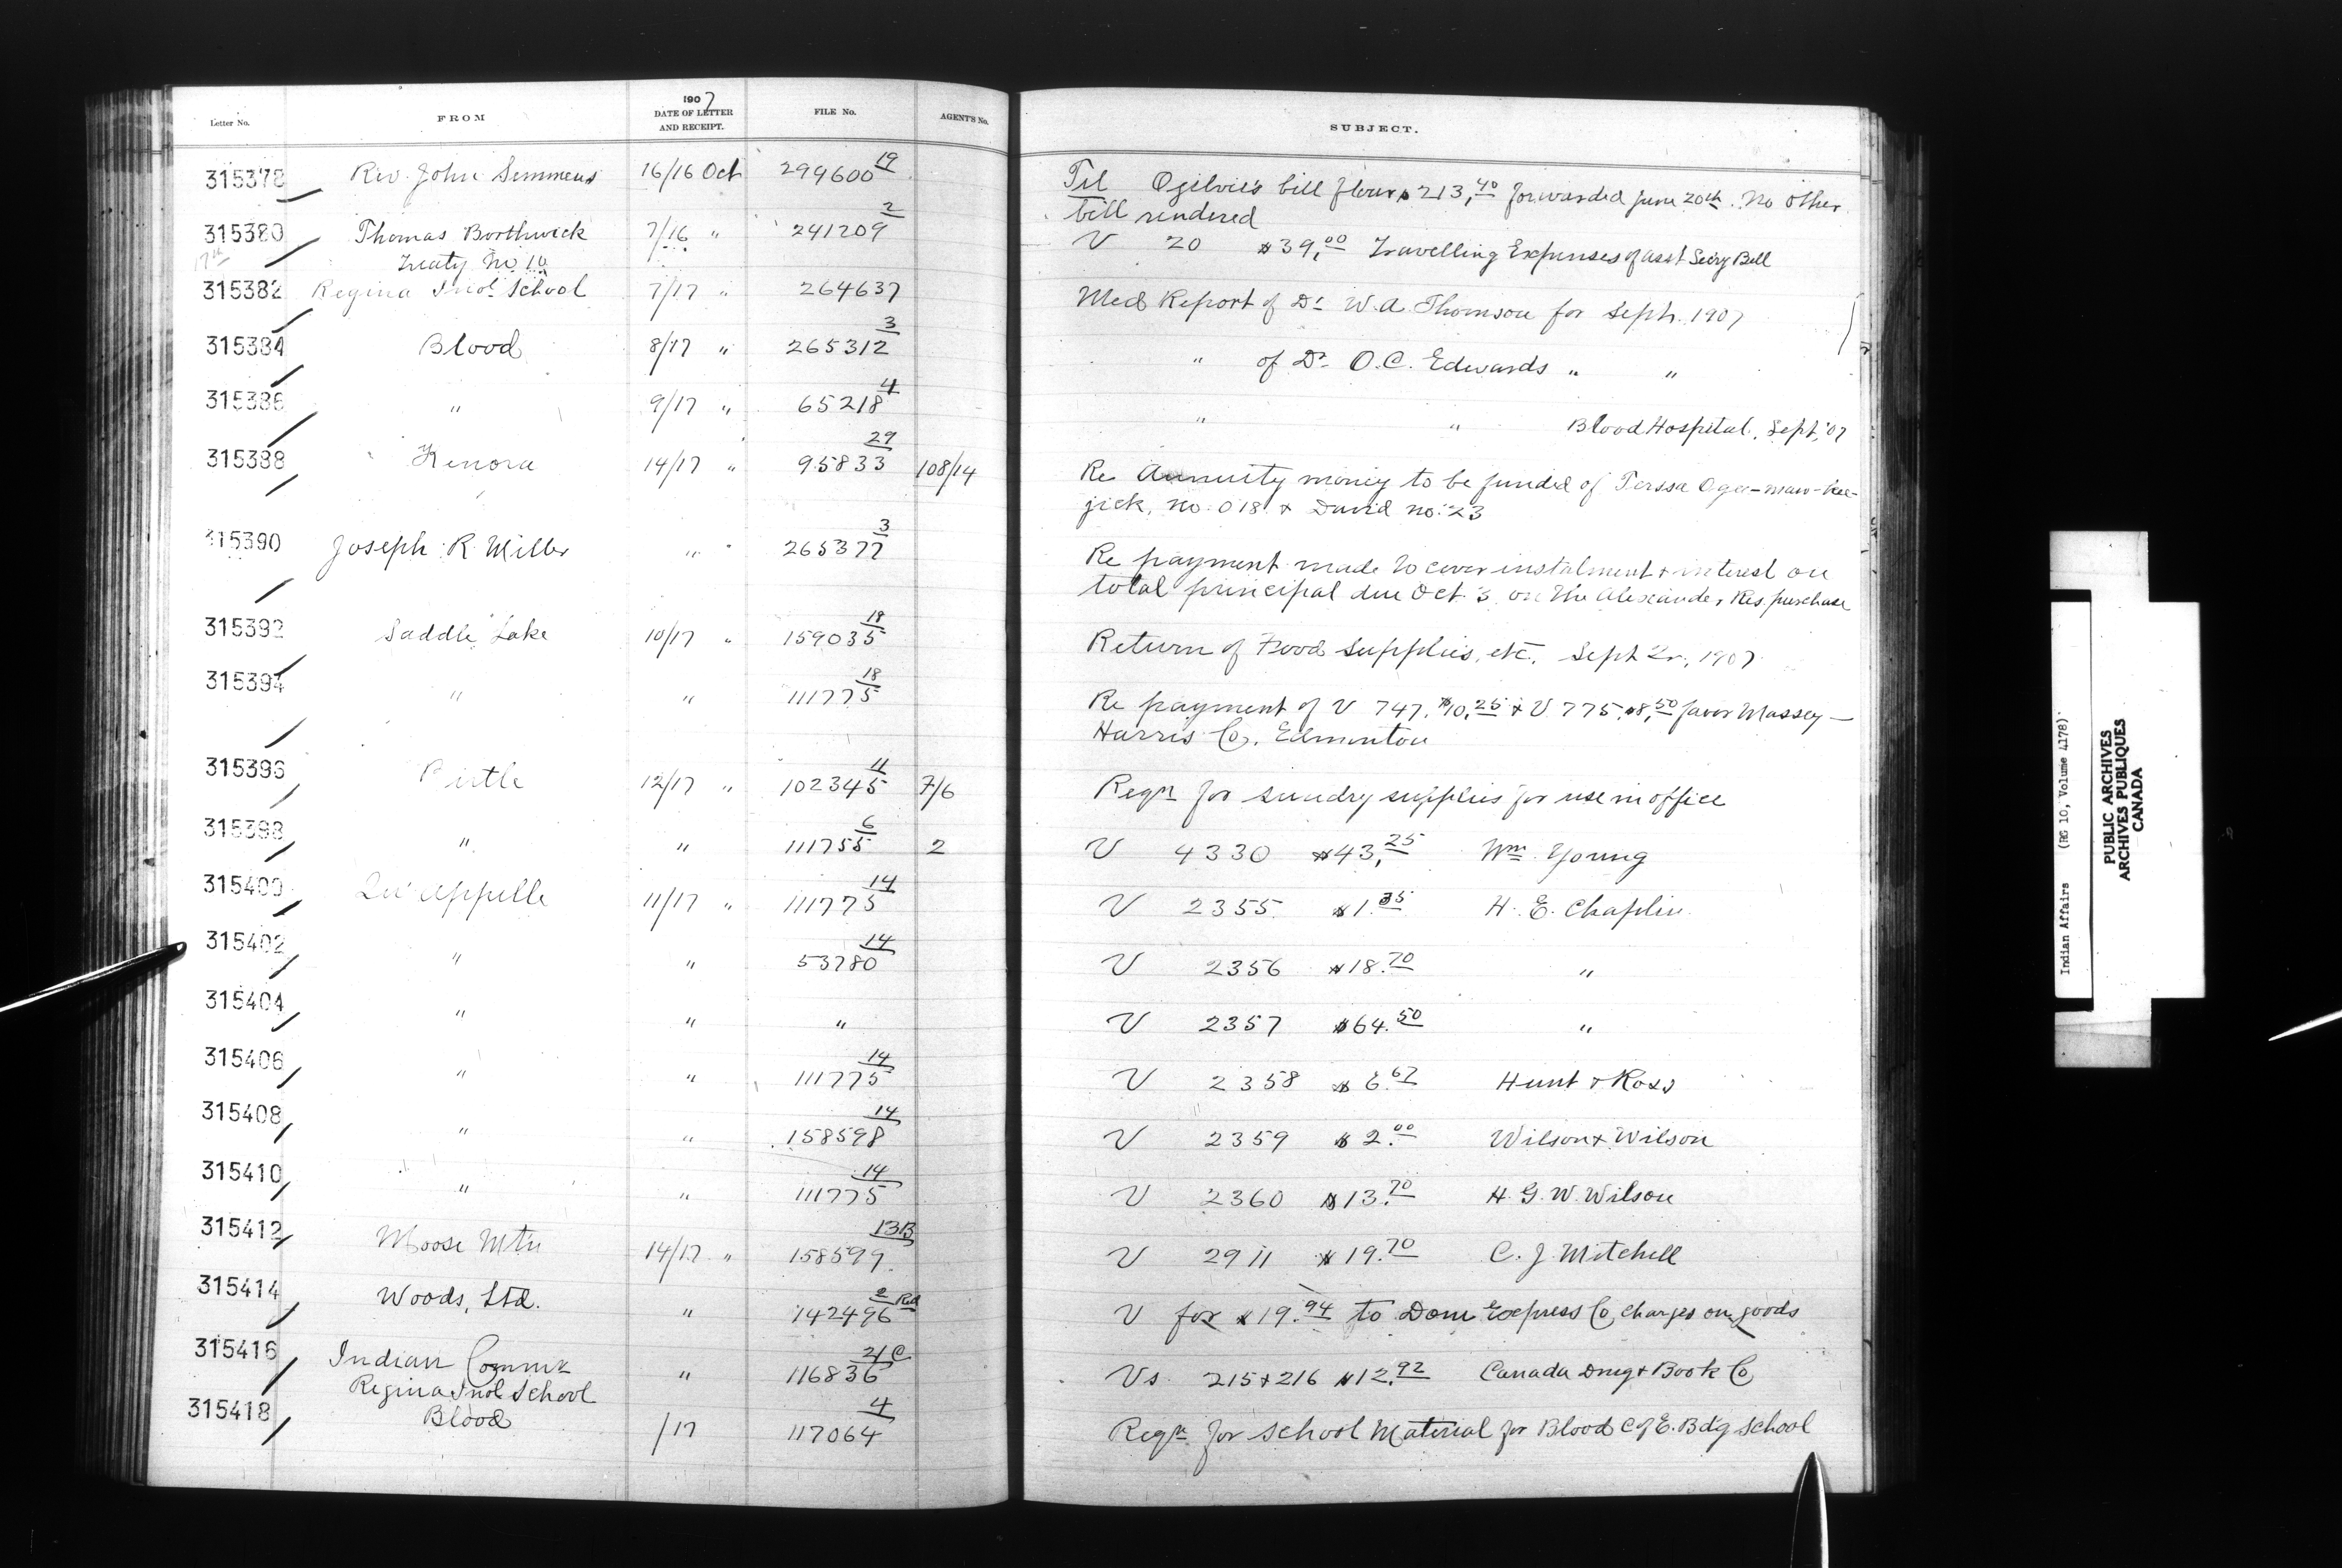 Letter No. FROM 1907 DATE OF LETTER AND RECEIPT. FILE No. AGENT'S No. SUBJECT.
315378 Rev. John Semmens 16/16 Oct 299600 19 Tel Ogilvie's bill flour $213,40 forwarded June 20th. No other
bill rendered
315380 Thomas Borthwick 7/16 " 241209 2 V 20 $39,00 Travelling Expenses of asst Secry Bell
17th Treaty No 10
315382 Regina Indl School 7/17 " 264637 Med Report of Dr W.A. Thomson for Sept. 1907
315384 Blood 8/17 " 265312 3 " of Dr. O.C. Edwards " "
315386 " 9/17 " 65218 4 " " Blood Hospital, Sept, '07
315388 Kenora 14/17 " 95833 29 108/14 Re Annuity money to be funded of Terssa Ogee-maw-kee-
jick, No. 018 & David No. 23
315390 Joseph R Miller " " 265377 3 Re payment made to cover instalment & interest on
total principal due Oct. 3 on the Alexander Res. purchase
315392 Saddle Lake 10/17 " 159035 18 Return of Food supplies, etc. Sept Qr, 1907
315394 " " 111775 18 Re payment of V 747, $10,25 & V 775, $8,50 favor Massey-
Harris Co. Edmonton
315396 Birtle 12/17 " 102345 11 7/6 Reqn for sundry supplies for use in office
315398 " " 111755 6 2 V 4330 $43,25 Wm. Young
315400 Qu'Appelle 11/17 " 111775 14 V 2355 $1.35 H. E. Chaplin
315402 " " 53780 14 V 2356 $18.70 "
315404 " " " V 2357 $64.50 "
315406 " " 111775 14 V 2358 $6.67 Hunt & Ross
315408 " " 158598 14 V 2359 $2.00 Wilson & Wilson
315410 " " 111775 14 V 2360 $13.70 H. G. W. Wilson
315412 Moose Mtn 14/17 " 158599 13B V 2911 $19.70 C. J. Mitchell
315414 Woods, Ltd. " 142496 2 Red V for $19.94 to Dom Express Co, charges on goods
315416 Indian Commr " 116836 21C Vs. 215 & 216 $12.92 Canada Drug & Book Co
Regina Indl School
315418 Blood /17 117064 4 Reqn for school Material for Blood C of E. Bdg School
Indian Affairs (RG 10, Volume 4178)
PUBLIC ARCHIVES
ARCHIVES PUBLIQUES
CANADA